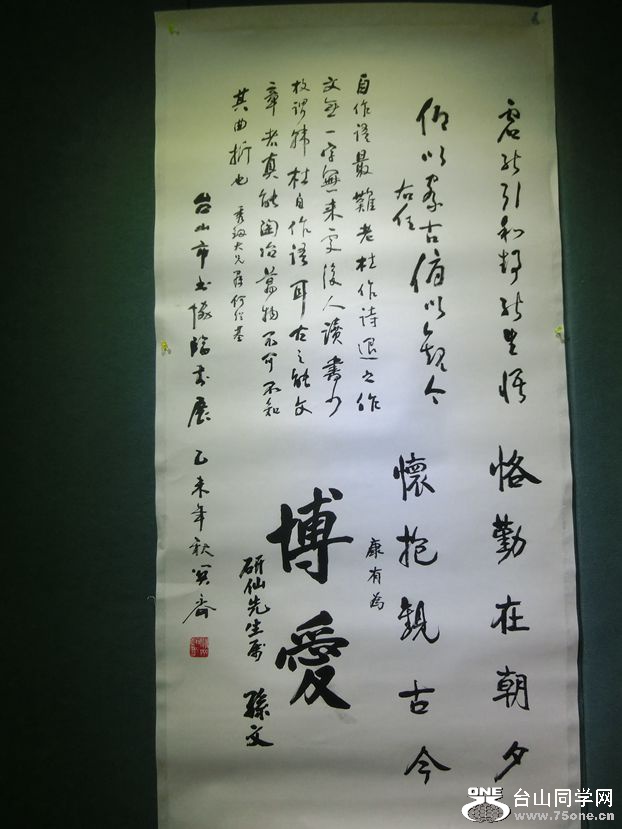 虚能引和静能生悟
仰以察古俯以觀今
右任
恪勤在朝夕
懷抱觀古今
康有為
自作語最難老杜作詩退之作
文無一字無来處後人讀書少
故謂韓杜自作語耳古之能文
章者真能陶冶萬物不可不知
其曲折也
博愛
研仙先生属
孫文
台山市书協臨書展 乙未年秋
ONE
台山同学网
www.75one.cn